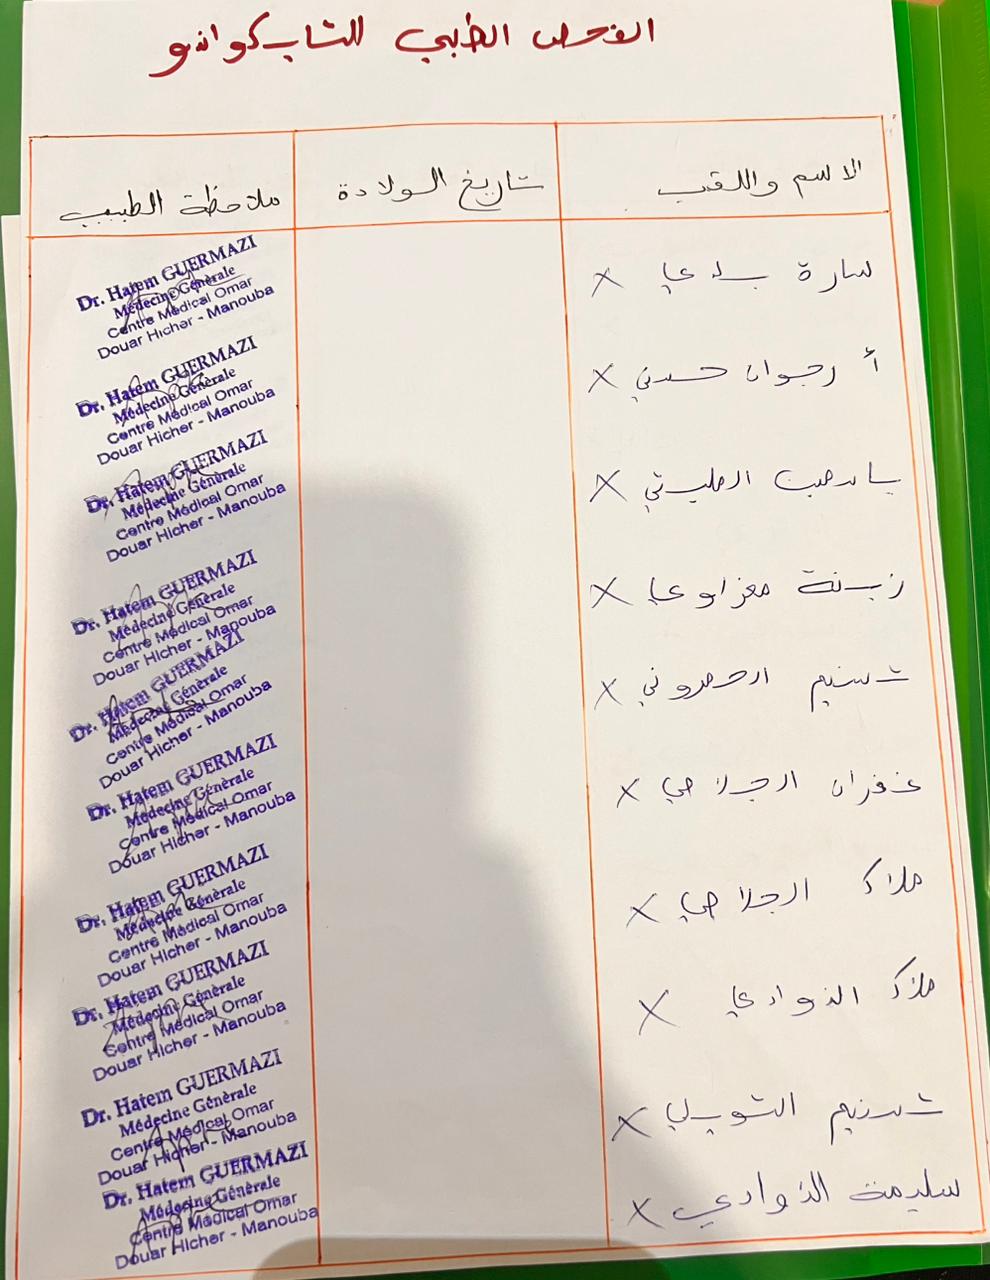 الفحص الطبي للشاب كواندو
الاسم واللقب
تاريخ الولادة
ملاحظة الطبيب
سارة بلاعي X
Dr. Hatem GUERMAZI
Médecine Générale
Centre Médical Omar
Douar Hicher - Manouba
أرجوان حسني X
Dr. Hatem GUERMAZI
Médecine Générale
Centre Médical Omar
Douar Hicher - Manouba
ياسمين X
Dr. Hatem GUERMAZI
Médecine Générale
Centre Médical Omar
Douar Hicher - Manouba
زينة مغزاوي X
Dr. Hatem GUERMAZI
Médecine Générale
Centre Médical Omar
Douar Hicher - Manouba
تسنيم الحمروني X
Dr. Hatem GUERMAZI
Médecine Générale
Centre Médical Omar
Douar Hicher - Manouba
غفران الجلاصي X
Dr. Hatem GUERMAZI
Médecine Générale
Centre Médical Omar
Douar Hicher - Manouba
ملاك الجلاصي X
Dr. Hatem GUERMAZI
Médecine Générale
Centre Médical Omar
Douar Hicher - Manouba
ملاك الذوادي X
Dr. Hatem GUERMAZI
Médecine Générale
Centre Médical Omar
Douar Hicher - Manouba
تسنيم الشويلي X
Dr. Hatem GUERMAZI
Médecine Générale
Centre Médical Omar
Douar Hicher - Manouba
سليمة الذوادي X
Dr. Hatem GUERMAZI
Médecine Générale
Centre Médical Omar
Douar Hicher - Manouba